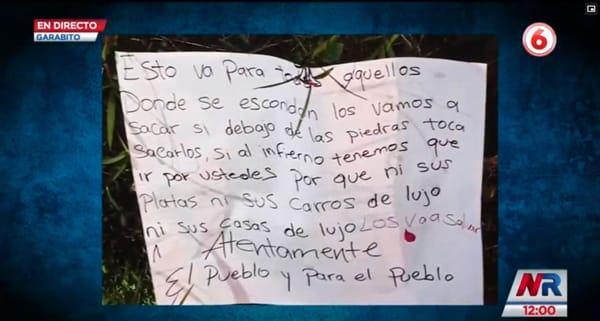 EN DIRECTO
GARABITO
6
Esto va Para todos aquellos
Donde se escondan los vamos a
sacar si debajo de las piedras toca
sacarlos, si al infierno tenemos que
ir por ustedes por que ni sus
Platas ni sus carros de lujo
ni sus casas de lujo Los va a salvar
Atentamente
El Pueblo y Para el Pueblo
NR
12:00